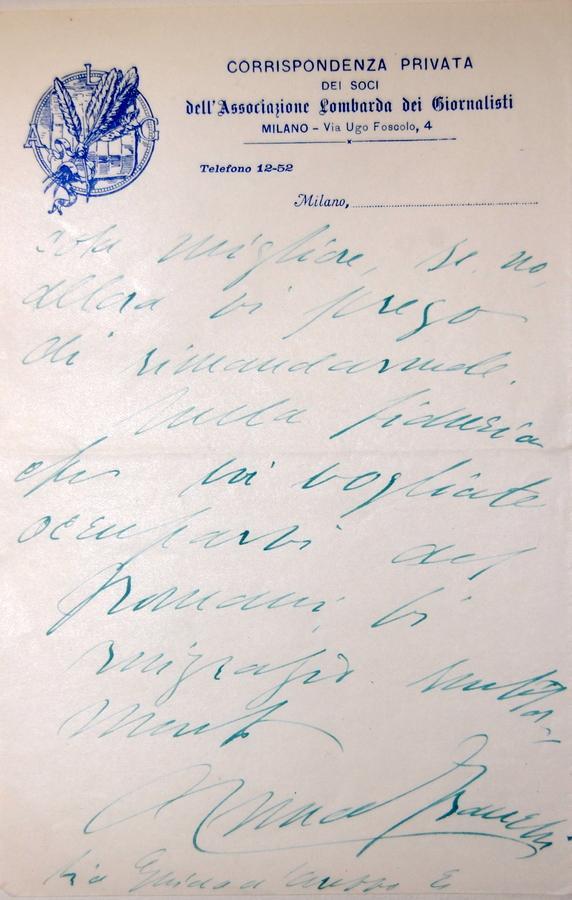 A L G
CORRISPONDENZA PRIVATA
DEI SOCI
dell'Associazione Lombarda dei Giornalisti
MILANO – Via Ugo Foscolo, 4
Telefono 12-52
Milano,
migliore, se no,
allora vi prego
di rimandarmele.
Nella fiducia
che vi vogliate
occuparvi del
Romani, vi
ringrazio
mente
Bianchi
Via Guido d'Arezzo